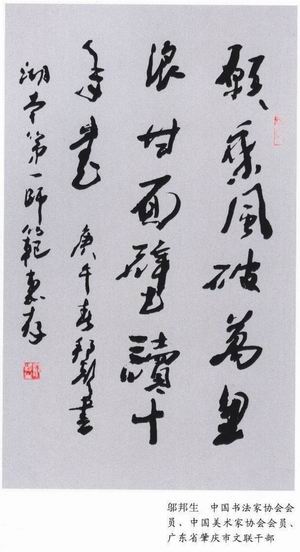 愿乘风破万里
浪甘面壁读十
年书 庚午春邦生书
湖南第一师范惠存
邬邦生 中国书法家协会会
员，中国美术家协会会员、
广东省肇庆市文联干部